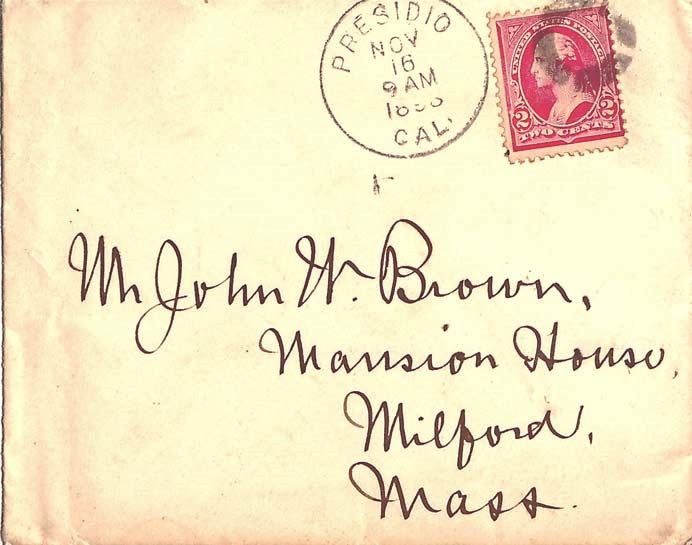 PRESIDIO
NOV
16
9 AM
CAL.
UNITED STATES POSTAGE
2 2
TWO CENTS
Mr John W. Brown,
Mansion House,
Milford,
Mass.